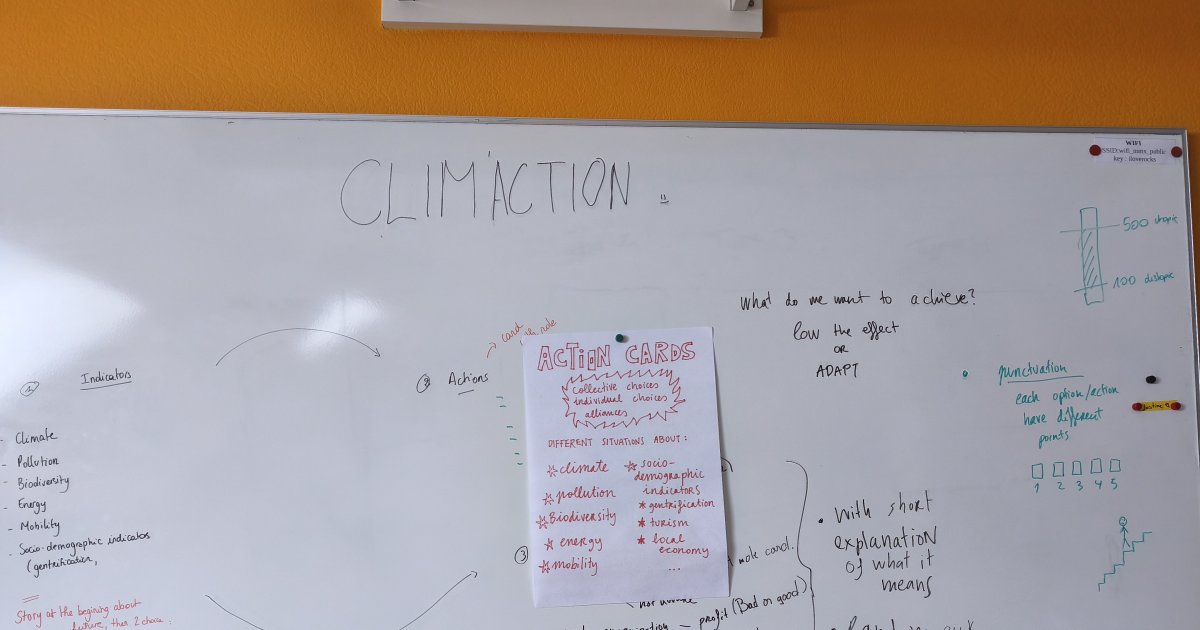 CLIM'ACTION
WIFI
SSID:wifi_mmx_public
key : iloverocks
500 utopic
100 distopic
What do we want to achieve?
low the effect
OR
ADAPT
punctuation
each option/action
have different
points
1 2 3 4 5
With short
explanation
of what it
means
1 Indicators
- Climate
- Pollution
- Biodiversity
- Energy
- Mobility
- Socio-demographic indicators
(gentrification,
Story at the begining about
future, then 2 choice :
2 Actions
card
role
ACTION CARDS
collective choices
individual choices
alliances
DIFFERENT SITUATIONS ABOUT :
climate
pollution
Biodiversity
energy
mobility
socio-
demographic
indicators
* gentrification
* turism
* local
economy
...
3
role card.
profit (Bad or good)